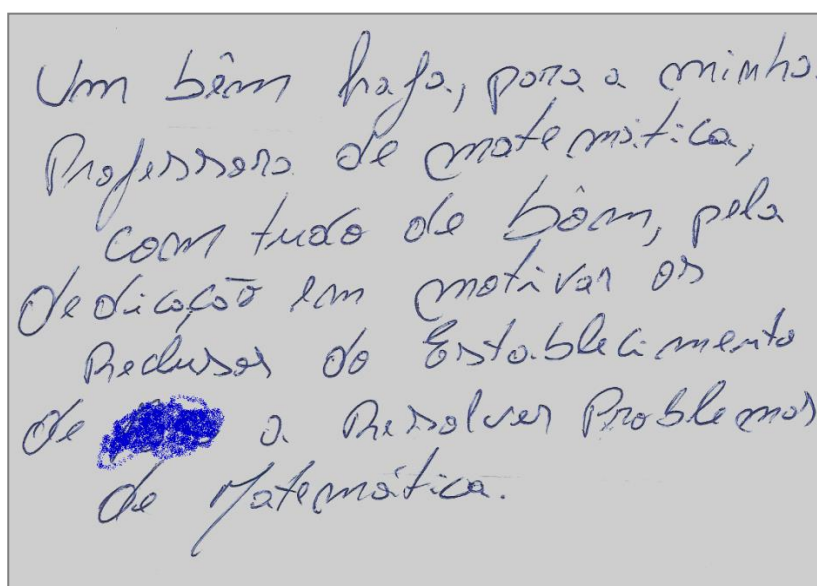 Um bêm haja, para a minha
Professora de matemática,
com tudo de bôm, pela
dedicação em motivar os
Reclusos do Establecimento
de a Resolver Problemas
de Matemática.